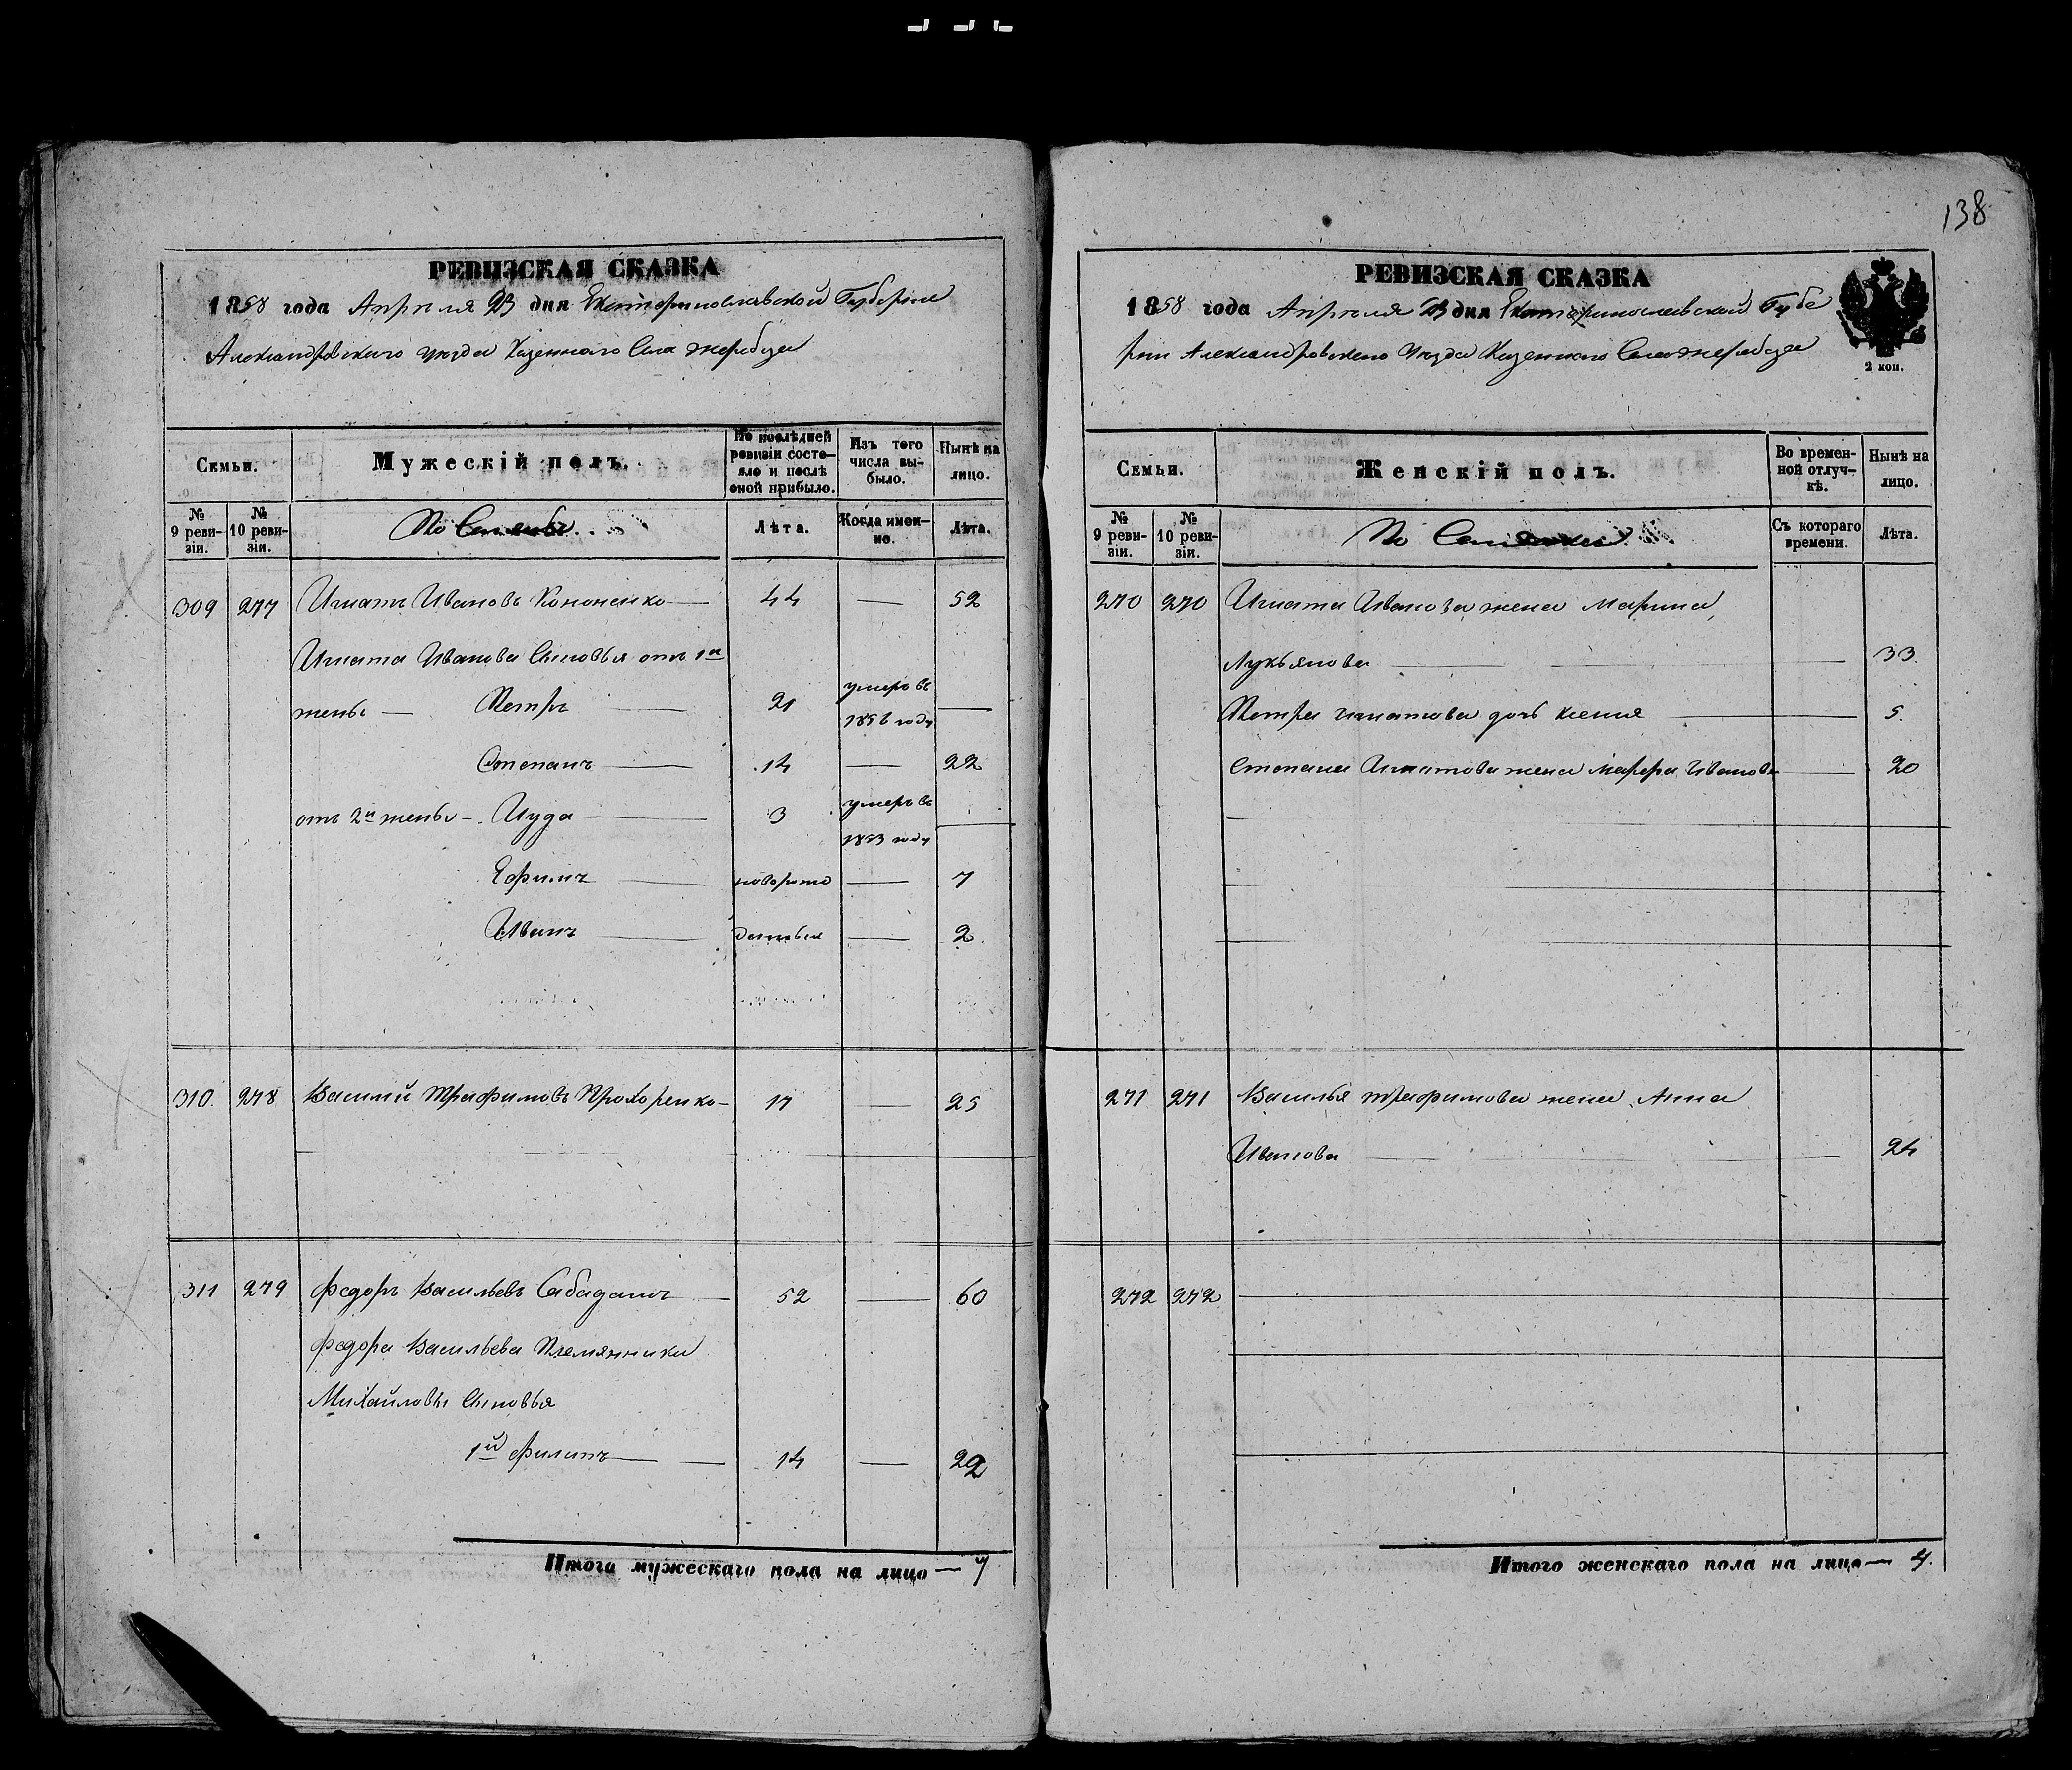 138
РЕВИЗСКАЯ СКАЗКА
1858 года Апреля 23 дня Екатеринославской Губернии
Александровскаго уезда Казеннаго Села Жеребца
Семьи.
Мужескій полъ.
По послѣдней ревизіи состояло и послѣ оной прибыло.
Изъ того числа выбыло.
Нынѣ на лицо.
№ 9 ревизіи.
№ 10 ревизіи.
Лѣта.
Когда именно.
Лѣта.
309 277 Игнатъ Ивановъ Кононенко — 44 — 52
Игната Иванова Сыновья отъ 1й
жены — Петръ — 21 умеръ въ 1856 году —
Степанъ — 14 — 22
отъ 2й жены — Иуда — 3 умеръ въ 1853 году —
Ефимъ — новорож — 7
Иванъ — — 2
310. 278 Василий Трафимовъ Прохоренко — 17 — 25
311 279 Федоръ Васильевъ Сабаданъ — 52 — 60
Федора Васильева Племянники
Михайловы Сыновья
1й Филипъ — 14 — 22
Итого мужескаго пола на лицо — 7
РЕВИЗСКАЯ СКАЗКА
1858 года Апреля 23 дня Екатеринославской Губе
рнии Александровскаго Уезда Казеннаго Села Жеребца
2 коп.
Семьи.
Женскій полъ.
Во временной отлучкѣ.
Нынѣ на лицо.
№ 9 ревизіи.
№ 10 ревизіи.
Съ котораго времени.
Лѣта.
270 270 Игната Иванова жена Марина
Лукьянова — — 33.
Петра Игнатова дочь Ксения — 5.
Степана Игнатова жена Марфа Иванова — 20
271 271 Василья Трафимова жена Анна
Иванова — — 24
272 272 —
Итого женскаго пола на лицо — 4.